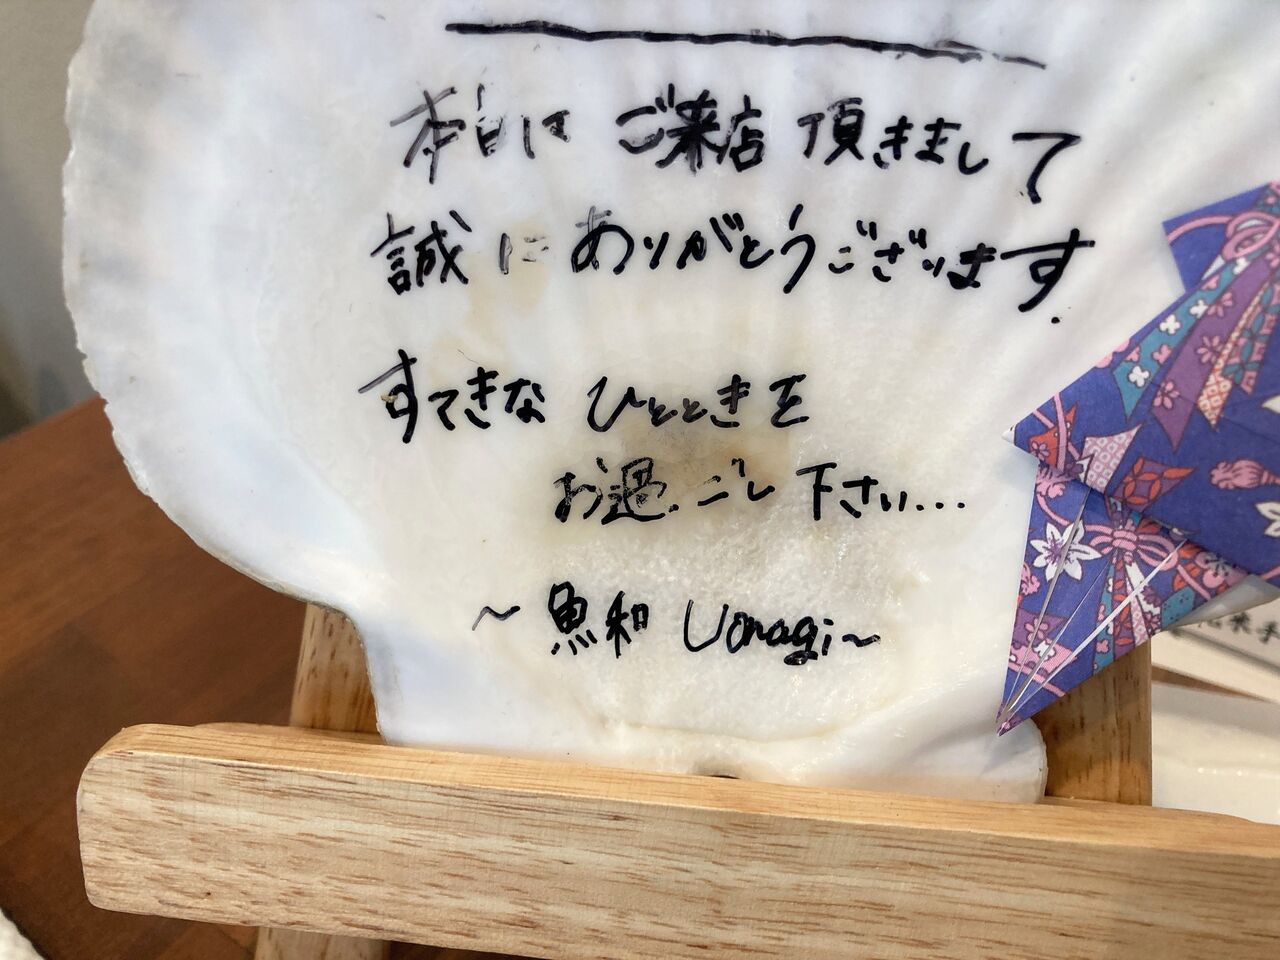 本日は ご来店 頂きまして
誠に ありがとうございます.
すてきな ひとときを
お過ごし 下さい...
~ 魚和 Uonagi ~